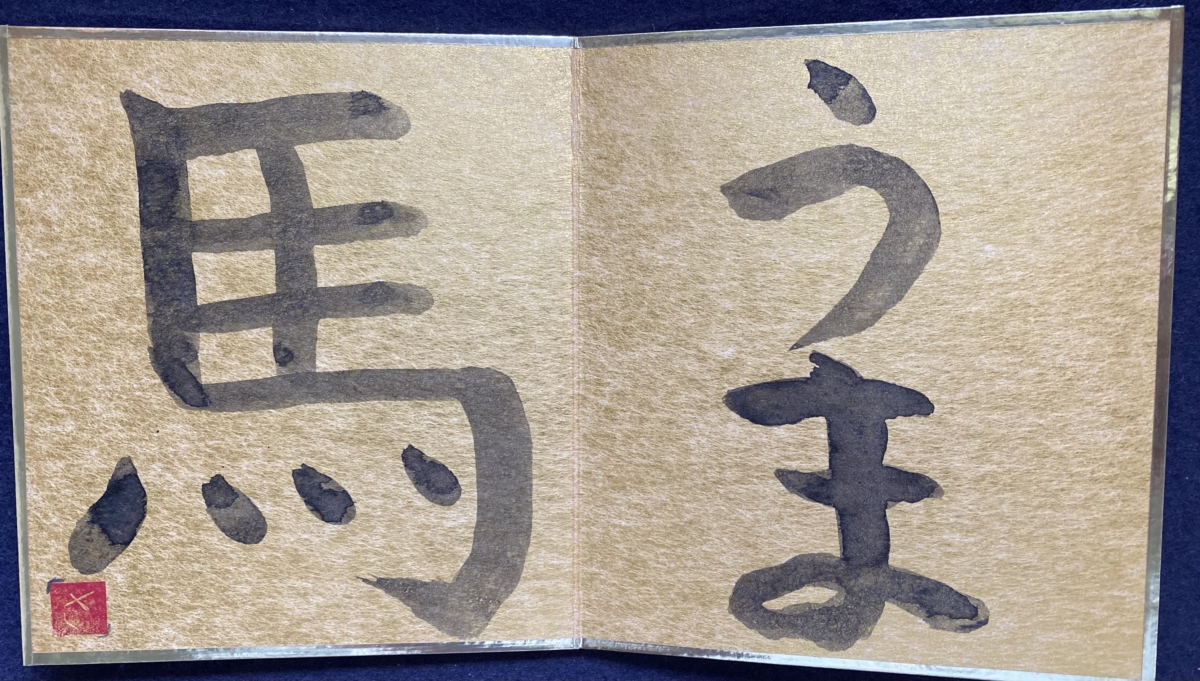 うま
馬